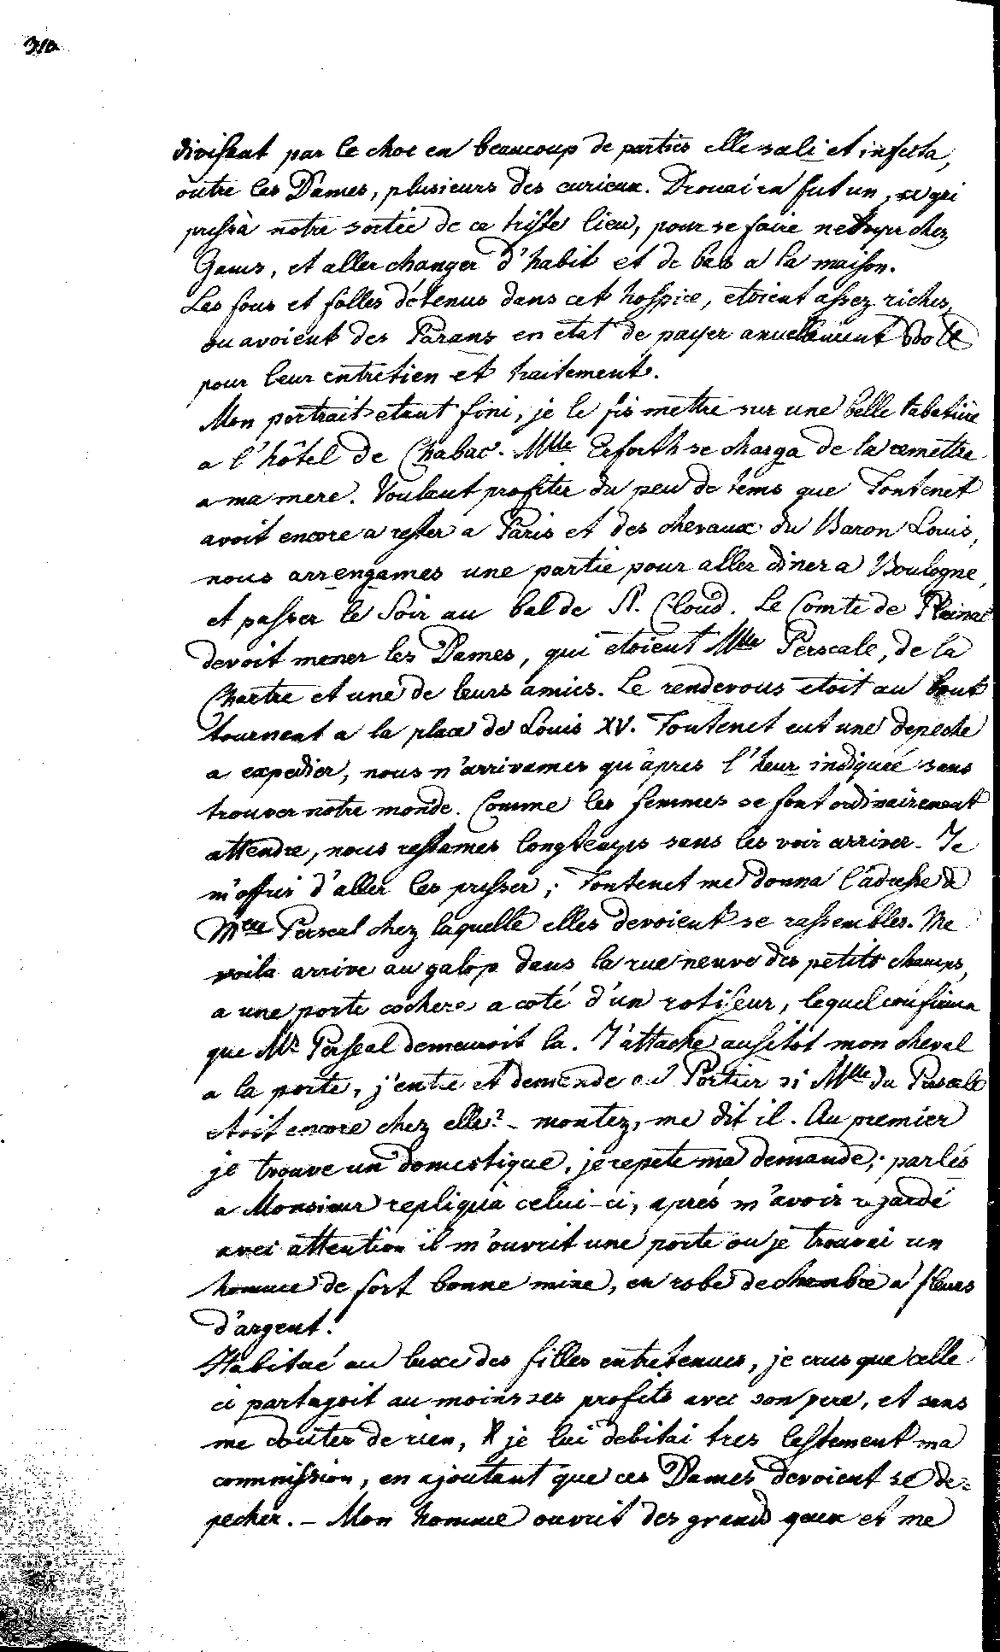 310
divisent par le choc en beaucoup de parties elle sali et infecta,
outre les Dames, plusieurs des curieux. Drouai en fut un, ce qui
pressà notre sortie de ce triste lieu, pour se faire netoyer chez
Gaus, et aller changer d'habit et de bas a la maison.
Les fous et folles détenus dans cet hospice, etoient assez riches,
ou avoient des Parans en etat de payer anuellement
pour leur entretien et traitement.
Mon portrait etant fini, je le fis mettre sur une belle tabatiere
a l'hôtel de Chabac. Mlle Erforth se charga de la remettre
a ma mere. Voulant profiter du peu de tems que Fontenet
avoit encore a rester a Paris et des chevaux du Baron Louis,
nous arrengames une partie pour aller diner a Boulogne,
et passer le Soir au bal de St. Cloud. Le Comte de
devoit mener les Dames, qui etoient Mlle Perscale, de la
Chartre et une de leurs amies. Le rendevous etoit au bout
tournent a la place de Louis XV. Fontenet eut une depeche
a expedier, nous n'arrivames qu'àpres l'heur indiqueé sans
trouver notre monde. Comme les femmes se font ordinairement
attendre, nous restames longtemps sans les voir arriver. Je
m'offris d'aller les presser; Fontenet me donna l'adresse de
Perseal chez laquelle elles devoient se rassembler. Me
voila arrive au galop dans la rue neuve des petits champs,
a une porte cochere a coté d'un rotiseur, lequel confirma
que Mr Perseal demeuroit la. J'attache ausitôt mon cheval
a la porte, j'entre et demende au Portier si Mlle du Perscale
etoit encore chez elle? - montez, me dit il. Au premier
je trouve un domestique, je repete ma demande; parlés
a Monsieur repliqua celui-ci, aprés m'avoir regardé
avec attention il m'ouvrit une porte ou je trouvai un
homme de fort bonne mine, en robe de chambre a fleurs
d'argent.
Habitué au luxe des filles entretenues, je crus que celle
ci partagoit au moins ses profits avec son pere, et sans
me douter de rien, je lui debitai tres lestement ma
commission, en ajoutant que ces Dames devoient se de=
pecher. - Mon homme ouvrit des grands yeux et me